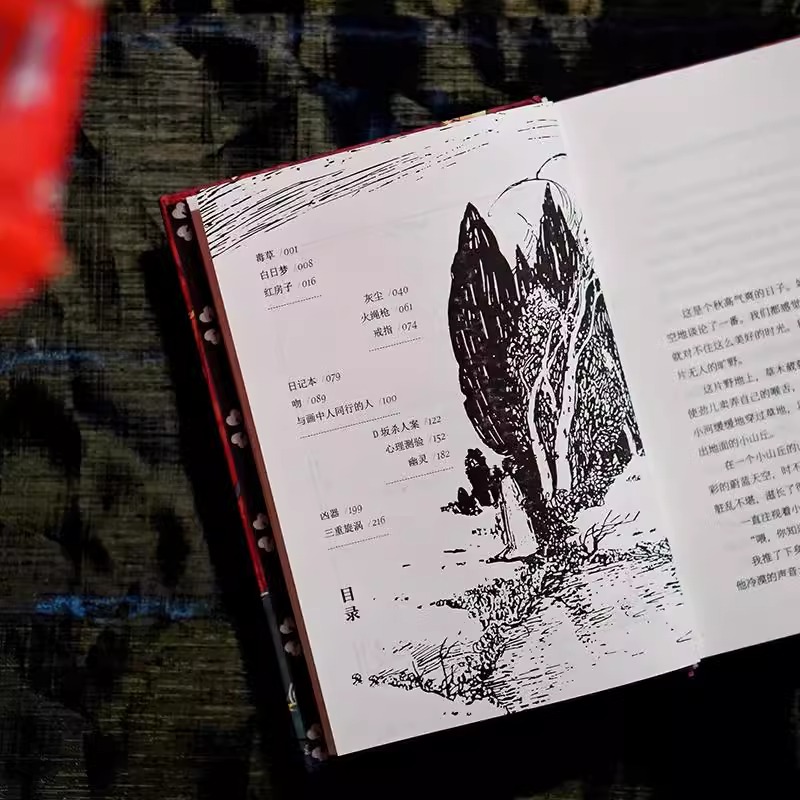 毒草 /001
白日梦 /008
红房子 /016
灰尘 /040
火绳枪 /061
戒指 /074
日记本 /079
吻 /089
与画中人同行的人 /100
D坂杀人案 /122
心理测验 /152
幽灵 /182
凶器 /199
三重旋涡 /216
目录
这是个秋高气爽的日子。
空地谈论了一番。我们都感觉
就对不住这么美好的时光。
片无人的旷野。
这片野地上，草木葳
使劲儿卖弄自己的喉舌，
小河缓缓地穿过草地，
出地面的小山丘。
在一个小山丘的
彩的蔚蓝天空，时不
脏乱不堪，滋长了
一直注视着小
“喂，你知
我推了下身
他冷漠的声音